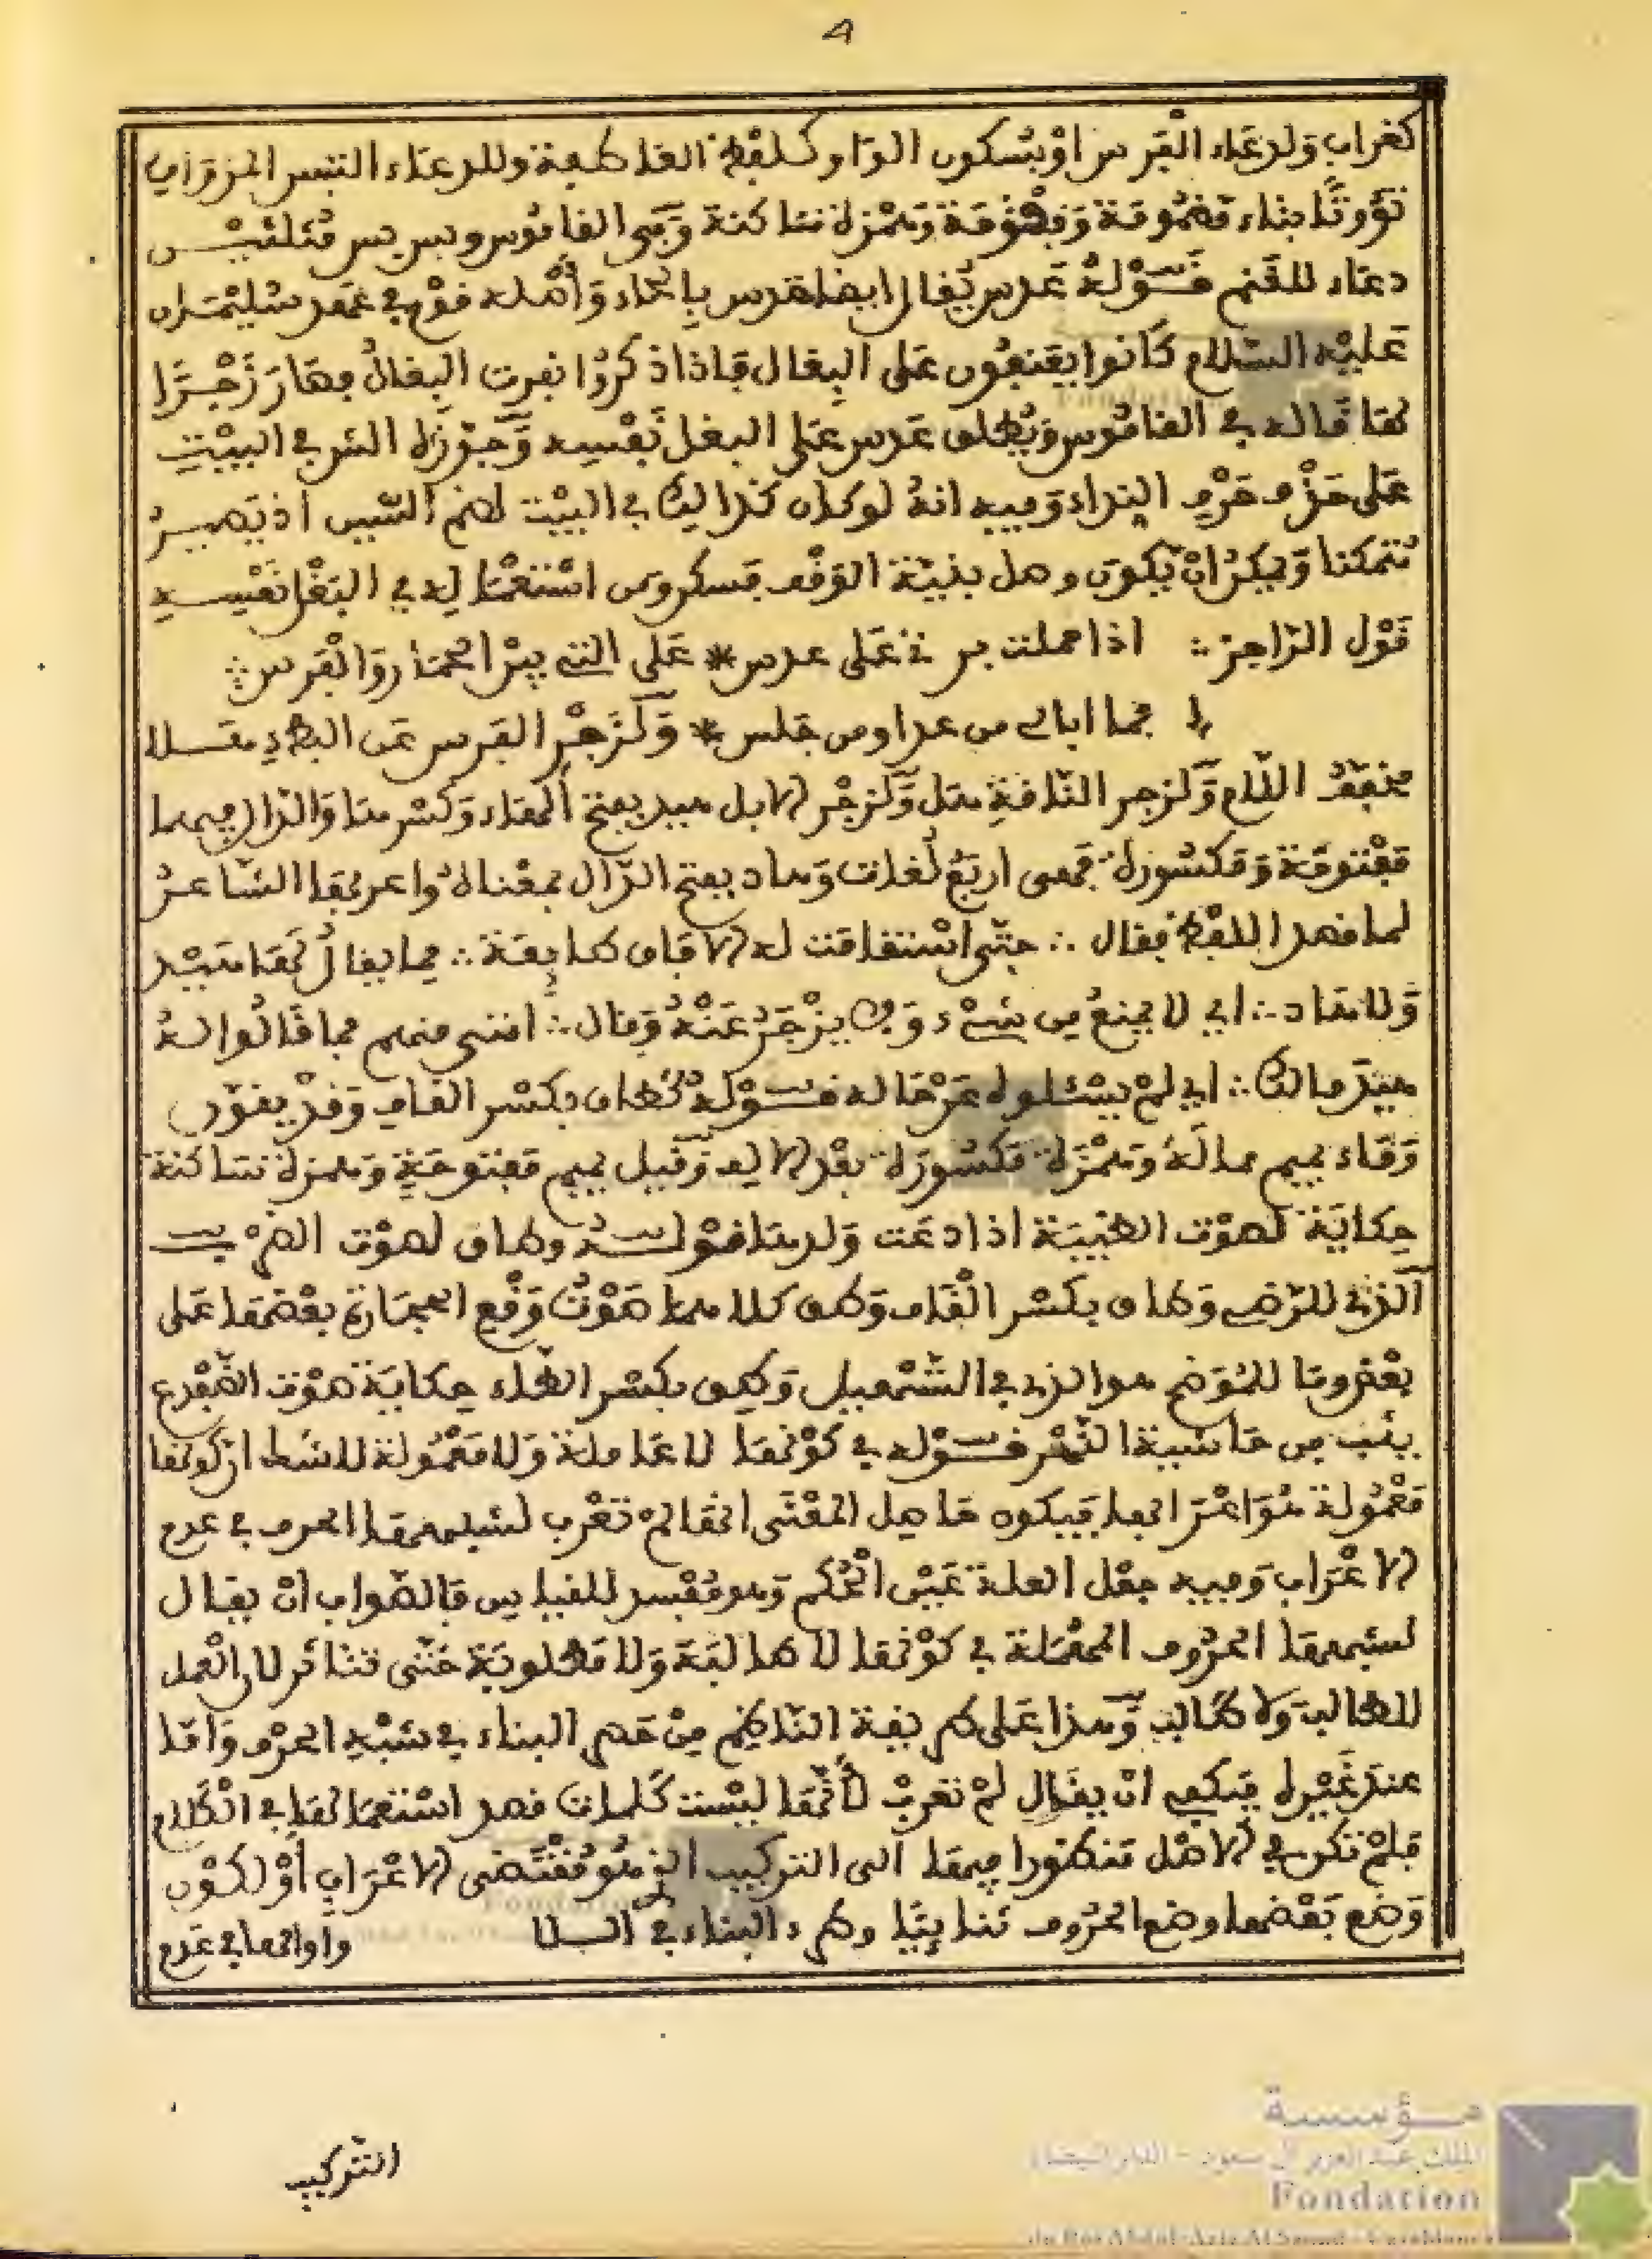 4
كغراب ولدعاء الفرس او بسكون الواو كلفظ العاطفة وللدعاء التيس المزوان
تؤوثا بتاء مضمومة ومضمومة وهمزة ساكنة وفي القاموس وبس بس مثلثين
دعاء للغنم قوله عدس يقال ايضا حدس بالحاء واصله قوم في عهد سليمان
عليه السلام كانوا يعنفون على البغال فاذا ذكروا نفرت البغال فصار زجرا
لها قاله في القاموس ويطلق عدس على البغل نفسه وجوزه الش في البيت
على حذف حرف النداء وفيه انه لو كان كذلك في البيت لضم السين اذ يصير
متمكنا ويمكن ان يكون وصل بنية الوقف فسكن ومن استعماله في البغل نفسه
قول الراجز ∴ اذا حملت بزتي على عدس * على التي بين الحمار والفرس ∴
فما ابالي من عدا ومن جلس * وكزجر الفرس عن البطء هلا
مخفف اللام وكزجر الناقة هل وكزجر الابل هيد بفتح الهاء وكسرها والدال فيهما
مفتوحة ومكسورة فهي اربع لغات وهاد بفتح الدال بمعناه واعربها الشاعر
لما قصد اللفظ فقال ∴ حتى استقامت له الآفاق طايعة ∴ فما يقال لها هيد
ولا هاد ∴ اي لا يمنع من شيء ولا يزجر عنه وقال ∴ انثنى منهم فما قالوا له
هيد مالك ∴ اي لم يسئلوه عن حاله قوله كطاق بكسر القاف وقد ينون
وماء بميم ممالة وهمزة مكسورة بعد الالف وقيل بميم مفتوحة وهمزة ساكنة
حكاية لصوت الظبية اذا دعت ولدها قوله وطاق لصوت الضرب
الذي للرضي وطاق بكسر القاف وطق كلاهما صوت وقع الحجارة بعضها على
بعض وما للموضح هو الذي في التسهيل وطق بكسر الطاء حكاية صوت الضفدع
بيت من حاشية النهر قوله في كونها لا عاملة ولا معمولة للاسقاط ان كونها
معمولة هو اعراب الفعل فيكون حاصل المعنى انها لم تعرب لشبهها الحرف في عدم
الاعراب وفيه جعل العلة عين الحكم وهو مفسد للقياس فالصواب ان يقال
لشبهها الحروف المهملة في كونها لا طالبة ولا مطلوبة حتى تتاثر لان العمل
للطالب ولا طالب وهذا على طريقة الناظم من حصر البناء في شبه الحرف واما
عند غيره فيكفي ان يقال لم تعرب لأنها ليست كلمات قصد استعمالها في الكلام
فلم تكن في الاصل منظورا فيها الى التركيب الذي هو مقتضى الاعراب او لكون
وضع بعضها وضع الحروف ثنائيا وطرد البناء في الباب واوائلها في عدم
التركيب
مؤسسة
الملك عبد العزيز آل سعود - الدار البيضاء
Fondation
du Roi Abdul-Aziz Al Saoud - Casablanca